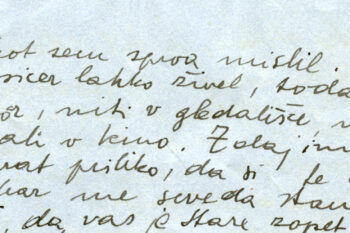 kot sem zprva mislil.
sicer lahko živel, toda
niti v gledališče,
ali v kino. Zdaj
priliko, da si je
kar me seveda
da vas je stare zopet